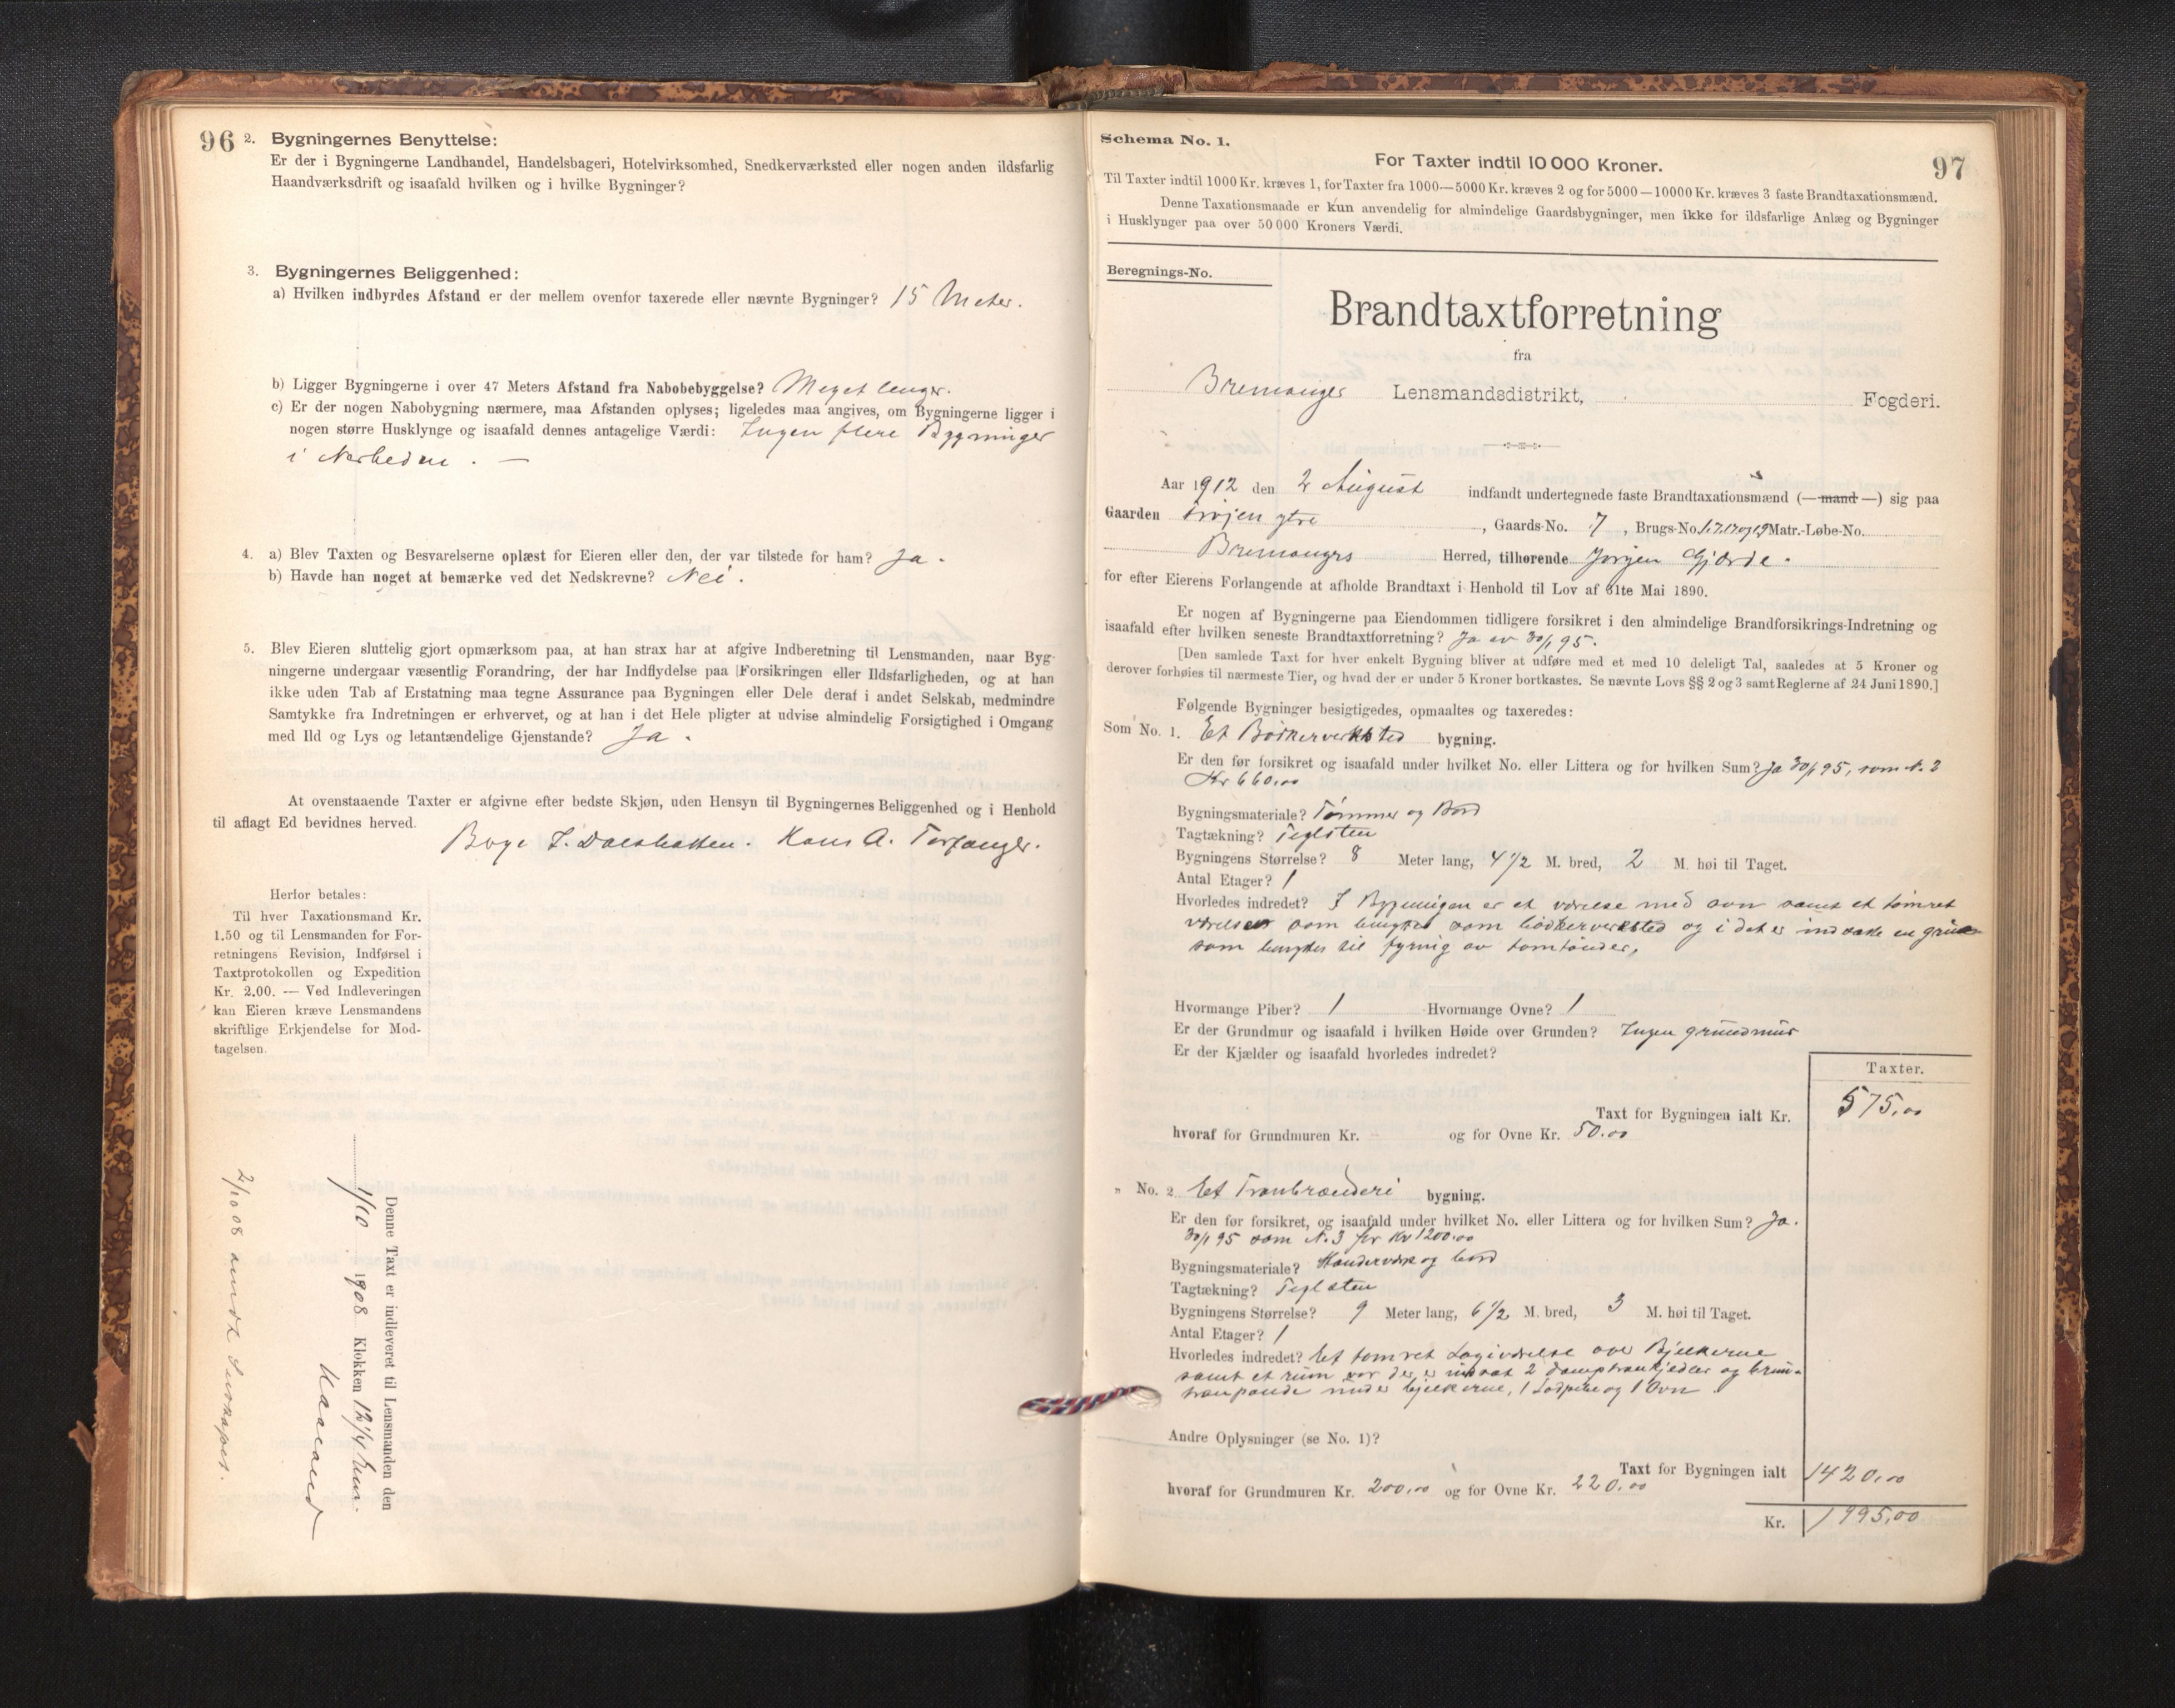 96
2. Bygningernes Benyttelse:
Er der i Bygningerne Landhandel, Handelsbageri, Hotelvirksomhed, Snedkerværksted eller nogen anden ildsfarlig
Haandværksdrift og isaafald hvilken og i hvilke Bygninger?
3. Bygningernes Beliggenhed:
a) Hvilken indbyrdes Afstand er der mellem ovenfor taxerede eller nævnte Bygninger? 15 Meter.
b) Ligger Bygningerne i over 47 Meters Afstand fra Nabobebyggelse? Meget lenger.
c) Er der nogen Nabobygning nærmere, maa Afstanden oplyses; ligeledes maa angives, om Bygningerne ligger i
nogen større Husklynge og isaafald dennes antagelige Værdi: Ingen flere Bygninger
i Nærheden. —
4. a) Blev Taxten og Besvarelserne oplæst for Eieren eller den, der var tilstede for ham? Ja.
b) Havde han noget at bemærke ved det Nedskrevne? Nei.
5. Blev Eieren sluttelig gjort opmærksom paa, at han strax har at afgive Indberetning til Lensmanden, naar Byg-
ningerne undergaar væsentlig Forandring, der har Indflydelse paa Forsikringen eller Ildsfarligheden, og at han
ikke uden Tab af Erstatning maa tegne Assurance paa Bygningen eller Dele deraf i andet Selskab, medmindre
Samtykke fra Indretningen er erhvervet, og at han i det Hele pligter at udvise almindelig Forsigtighed i Omgang
med Ild og Lys og letantændelige Gjenstande? Ja.
At ovenstaaende Taxter er afgivne efter bedste Skjøn, uden Hensyn til Bygningernes Beliggenhed og i Henhold
til aflagt Ed bevidnes herved.
Hans A. Torfanger.
Herfor betales:
Til hver Taxationsmand Kr.
1.50 og til Lensmanden for For-
retningens Revision, Indførsel i
Taxtprotokollen og Expedition
Kr. 2.00. — Ved Indleveringen
kan Eieren kræve Lensmandens
skriftlige Erkjendelse for Mod-
tagelsen.
Denne Taxt er indleveret til Lensmanden den
1/10 1908 Klokken 12 1/4
2/10 08
97
Schema No. 1.
For Taxter indtil 10 000 Kroner.
Til Taxter indtil 1000 Kr. kræves 1, for Taxter fra 1000—5000 Kr. kræves 2 og for 5000—10000 Kr. kræves 3 faste Brandtaxationsmænd.
Denne Taxationsmaade er kun anvendelig for almindelige Gaardsbygninger, men ikke for ildsfarlige Anlæg og Bygninger
i Husklynger paa over 50 000 Kroners Værdi.
Beregnings-No.
Brandtaxtforretning
fra
Bremanger Lensmandsdistrikt, Fogderi.
Aar 1912 den 2 August indfandt undertegnede faste Brandtaxationsmænd (—mand—) sig paa
Gaarden ytre, Gaards-No. 7, Brugs-No. 1.7.17 og 19 Matr.-Løbe-No.
Bremangers Herred, tilhørende Jørgen Gjørde.
for efter Eierens Forlangende at afholde Brandtaxt i Henhold til Lov af 31te Mai 1890.
Er nogen af Bygningerne paa Eiendommen tidligere forsikret i den almindelige Brandforsikrings-Indretning og
isaafald efter hvilken seneste Brandtaxtforretning? Ja av 30/1 95.
[Den samlede Taxt for hver enkelt Bygning bliver at udføre med et med 10 deleligt Tal, saaledes at 5 Kroner og
derover forhøies til nærmeste Tier, og hvad der er under 5 Kroner bortkastes. Se nævnte Lovs §§ 2 og 3 samt Reglerne af 24 Juni 1890.]
Følgende Bygninger besigtigedes, opmaaltes og taxeredes:
Som No. 1. Et Bødkerverksted bygning.
Er den før forsikret og isaafald under hvilket No. eller Littera og for hvilken Sum? Ja 30/1 95, som N. 2
Kr 660.00
Bygningsmateriale? Tømmer og Bord
Tagtækning? Teglsten
Bygningens Størrelse? 8 Meter lang, 4 1/2 M. bred, 2 M. høi til Taget.
Antal Etager? 1
Hvorledes indredet? I Bygningen er et værelse med ovn samt et tømret
værelse som benyttes som bødkerverksted og i det er indsatt en grue
som benyttes til fyrring av tomtønder,
Hvormange Piber? 1 Hvormange Ovne? 1
Er der Grundmur og isaafald i hvilken Høide over Grunden? Ingen grundmur
Er der Kjælder og isaafald hvorledes indredet?
Taxter.
Taxt for Bygningen ialt Kr. 575.00
hvoraf for Grundmuren Kr. - og for Ovne Kr. 50.00
" No. 2 Et Tranbrænderi bygning.
Er den før forsikret, og isaafald under hvilket No. eller Littera og for hvilken Sum? Ja.
30/1 95 som N. 3 for Kr 1200.00
Bygningsmateriale? Standerverk og bord
Tagtækning? Teglsten
Bygningens Størrelse? 9 Meter lang, 6 1/2 M. bred, 3 M. høi til Taget.
Antal Etager? 1
Hvorledes indredet? Et tømret Logiværelse over Bjelkerne
samt et rum vor der er indsat 2 damptrankjedler og brun-
tranpande under bjelkerne, 1 Lodpibe og 1 Ovn
Andre Oplysninger (se No. 1)?
Taxt for Bygningen ialt 1420.00
hvoraf for Grundmuren Kr. 200.00 og for Ovne Kr. 220.00
Kr. 1995,00